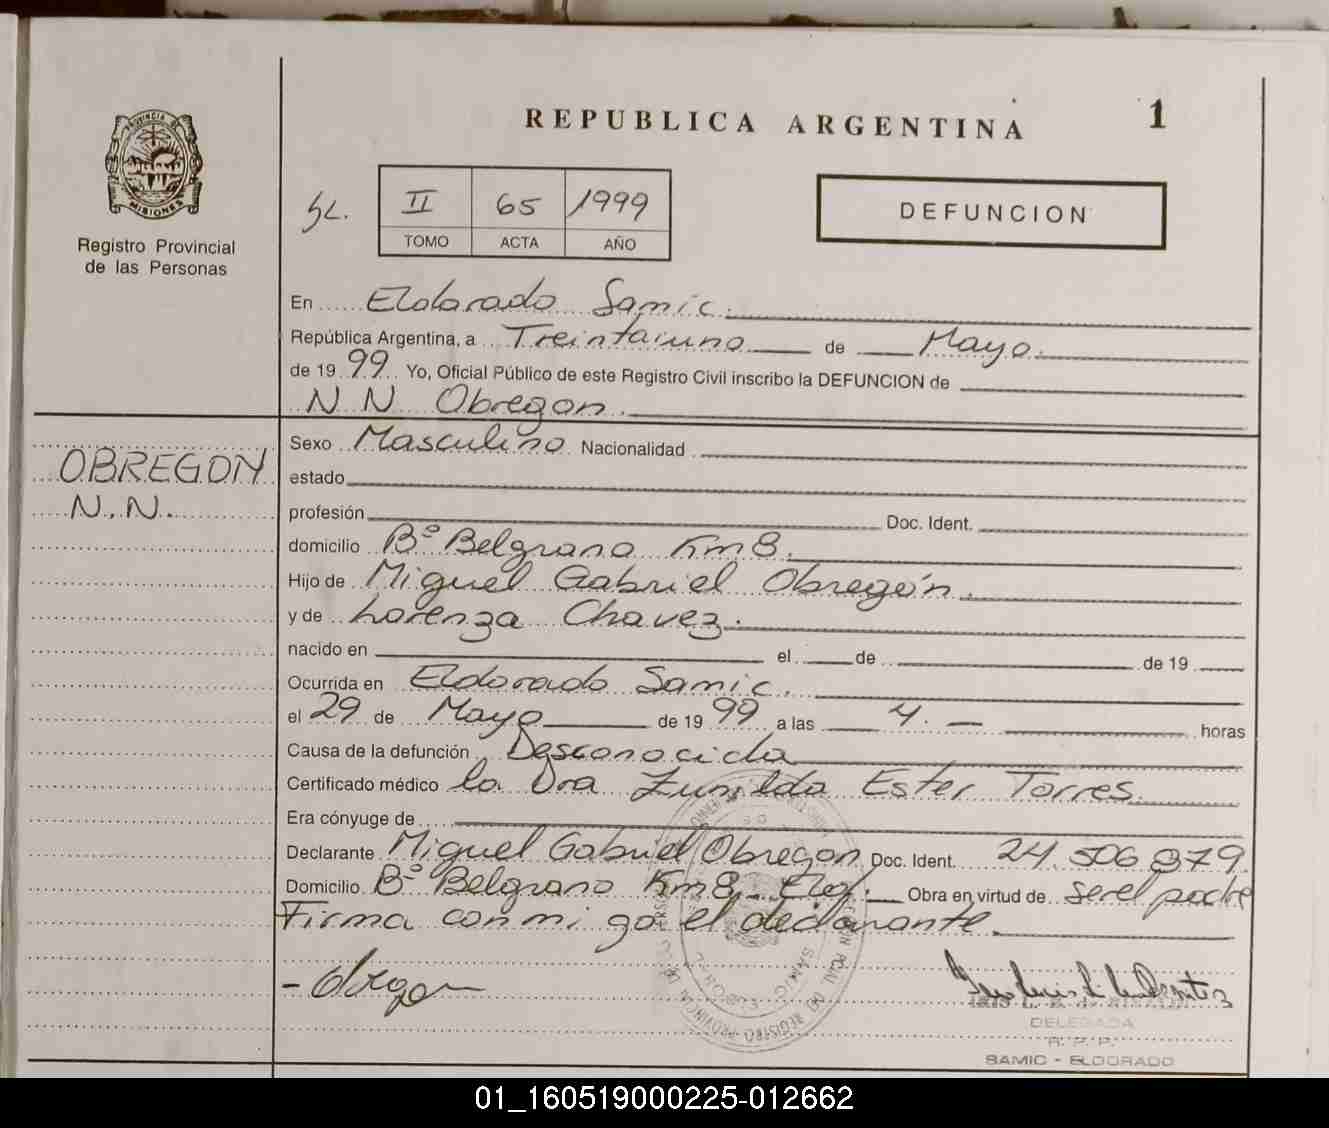 REPUBLICA ARGENTINA
1
PROVINCIA DE
MISIONES
Registro Provincial
de las Personas
II 65 1999
TOMO ACTA AÑO
DEFUNCION
En Eldorado Samic.
República Argentina, a Treintaiuno de Mayo.
de 19 99 Yo, Oficial Público de este Registro Civil inscribo la DEFUNCION de
N N Obregon.
OBREGON
N.N.
Sexo Masculino Nacionalidad
estado
profesión Doc. Ident.
domicilio Bº Belgrano Km 8.
Hijo de Miguel Gabriel Obregón.
y de Lorenza Chavez.
nacido en el de de 19
Ocurrida en Eldorado Samic.
el 29 de Mayo de 19 99 a las 4. — horas
Causa de la defunción Desconocida
Certificado médico la Dra Zunilda Ester Torres
Era cónyuge de
Declarante Miguel Gabriel Obregon Doc. Ident. 24.506.879.
Domicilio Bº Belgrano Km 8 - Eldo. Obra en virtud de ser el padre
Firma conmigo el declarante.
- Obregon
DELEGADA
R.P.P.
SAMIC - ELDORADO
01_160519000225-012662